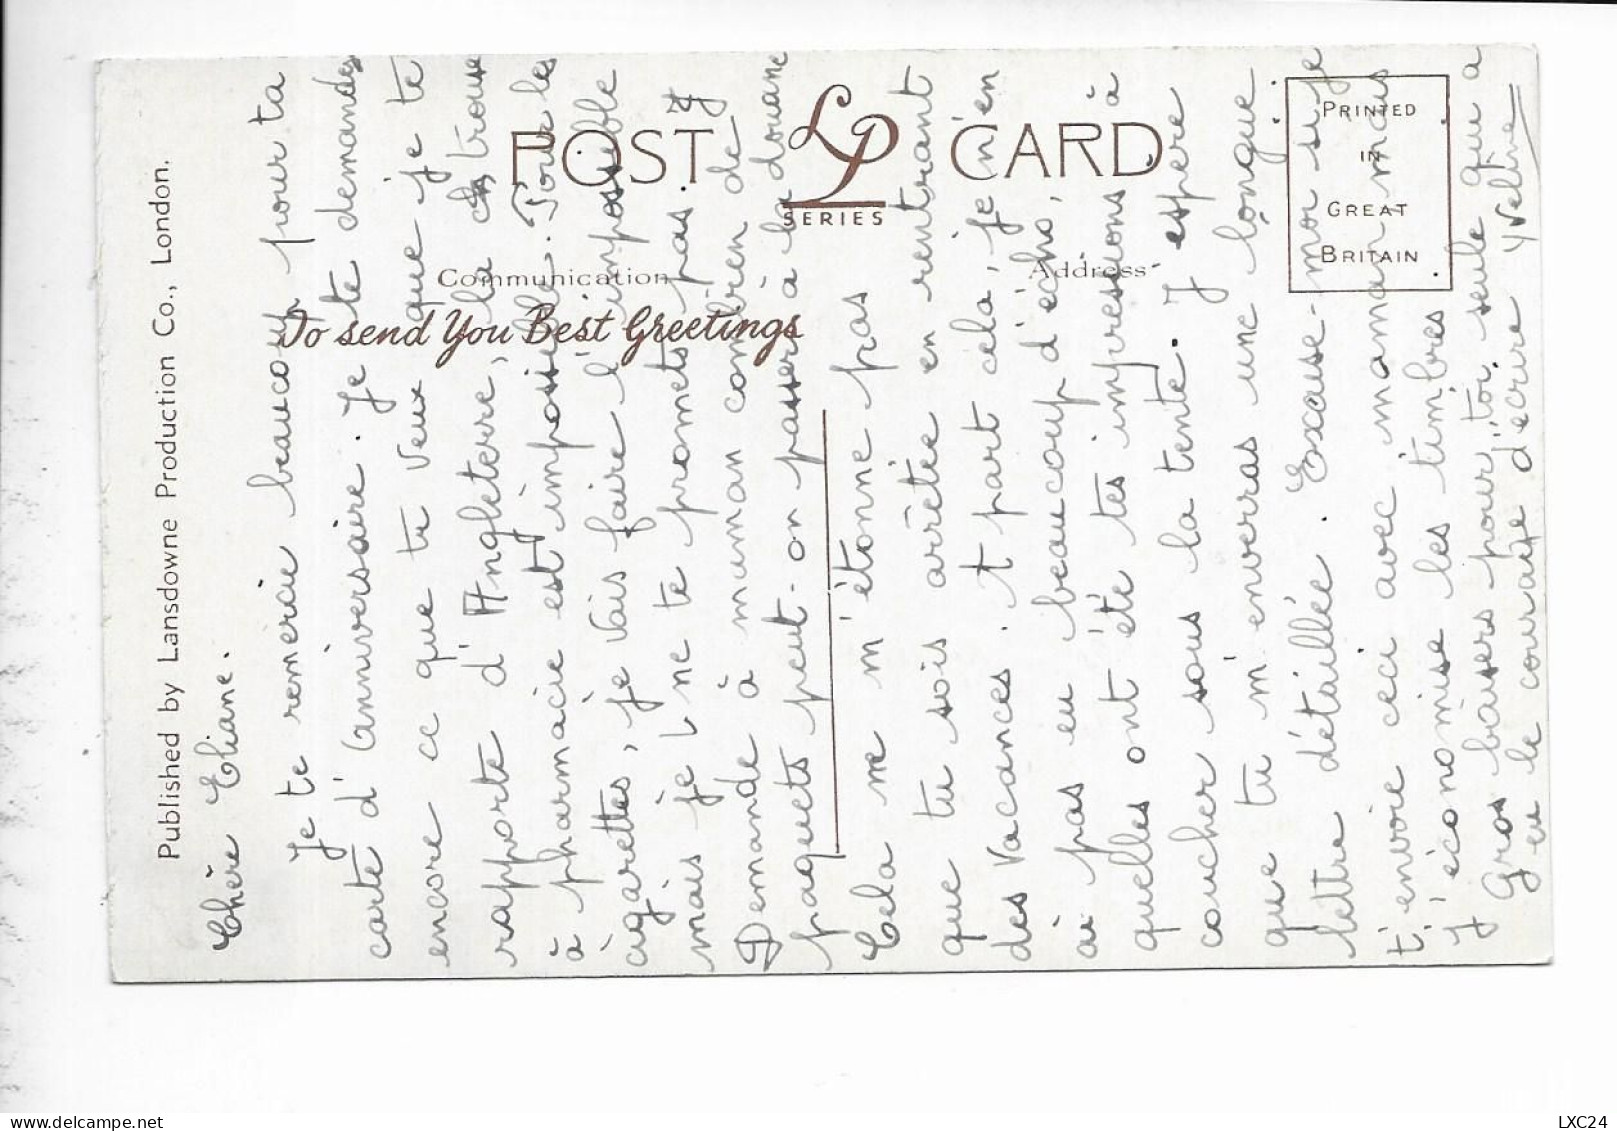 Published by Lansdowne Production Co., London.
POST CARD
LP
SERIES
Communication
Address
To send You Best Greetings
PRINTED
IN
GREAT
BRITAIN
Chère Eliane.
Je te remercie beaucoup pour ta
carte d'anniversaire. Je te demandes
encore ce que tu veux que je te
rapporte d'Angleterre, la trouse
à pharmacie est impossible. Pour les
cigarettes, je vais faire l'impossible
mais je ne te promets pas.
Demande à maman combien de
paquets peut-on passer à la douane
Cela me m'étonne pas
que tu sois arrêtée en rentrant
des vacances. A part cela, je n'en
ai pas eu beaucoup d'écho,
quelles ont été tes impressions à
coucher sous la tente. J'espere
que tu m'enverras une longue
lettre détaillée. Excuse-moi si je
t'envoie ceci avec maman mais
j'économise les timbres
Gros baisers pour toi seule qui a
eu le courage d'écrire Yveline
LXC24